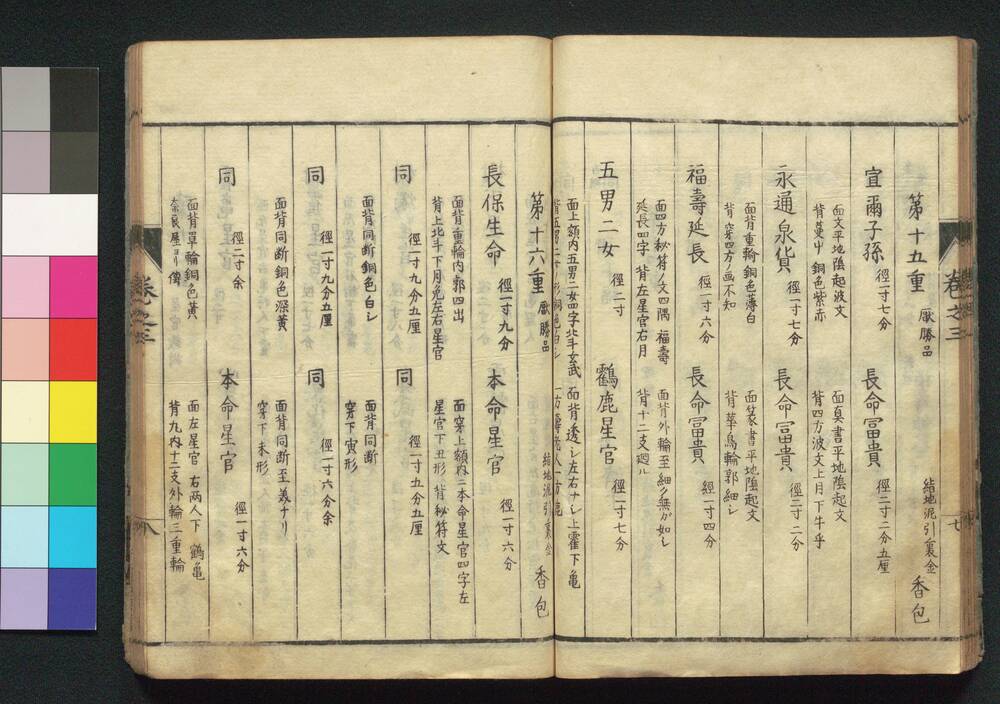 第十五重 厭勝品 結地泥引裏金 香包
宜爾子孫 徑一寸七分
面文平地陰起波文
背蔓中 銅色紫赤
長命冨貴 徑二寸二分五厘
面真書平地陰起文
背四方波文上月下牛乎
永通泉貨 徑一寸七分
面背重輪銅色薄白
背穿四方ノ画不知
長命冨貴 徑二寸二分
面篆書平地陰起文
背華鳥輪郭細シ
福壽延長 徑一寸六分
面四方秘符ノ文四隅 福壽
延長四字 背左星官右月
長命冨貴 經一寸四分
面背外輪至細ク無カ如シ
背十二支廻ル
五男二女 徑二寸
面上額内五男二女四字北斗玄武
背五男二女ノ形銅色白シ
鶴鹿星官 徑一寸七分
面背透シ左右ナシ上霍下亀
一方壽老人一方鹿
卷之三
七
第十六重 厭勝品 結地泥引裏金 香包
長保生命 徑一寸九分
面背重輪内郭四出
背上北斗下月兔左右星官
本命星官 徑一寸六分
面穿上額内ニ本命星官四字左
星官下丑形 背秘符文
同 徑一寸九分五厘
面背同断銅色白シ
同 徑一寸五分五厘
面背同断
穿下寅形
同 徑一寸九分五厘
面背同断銅色深黄
同 徑一寸六分余
面背同断至美ナリ
穿下未形
同 徑二寸余
面背單輪銅色黄
奈良屋ヨリ傳
本命星官 徑一寸六分
面左星官 右両人下 鶴亀
背九内十二支外輪三重輪
卷之三
八